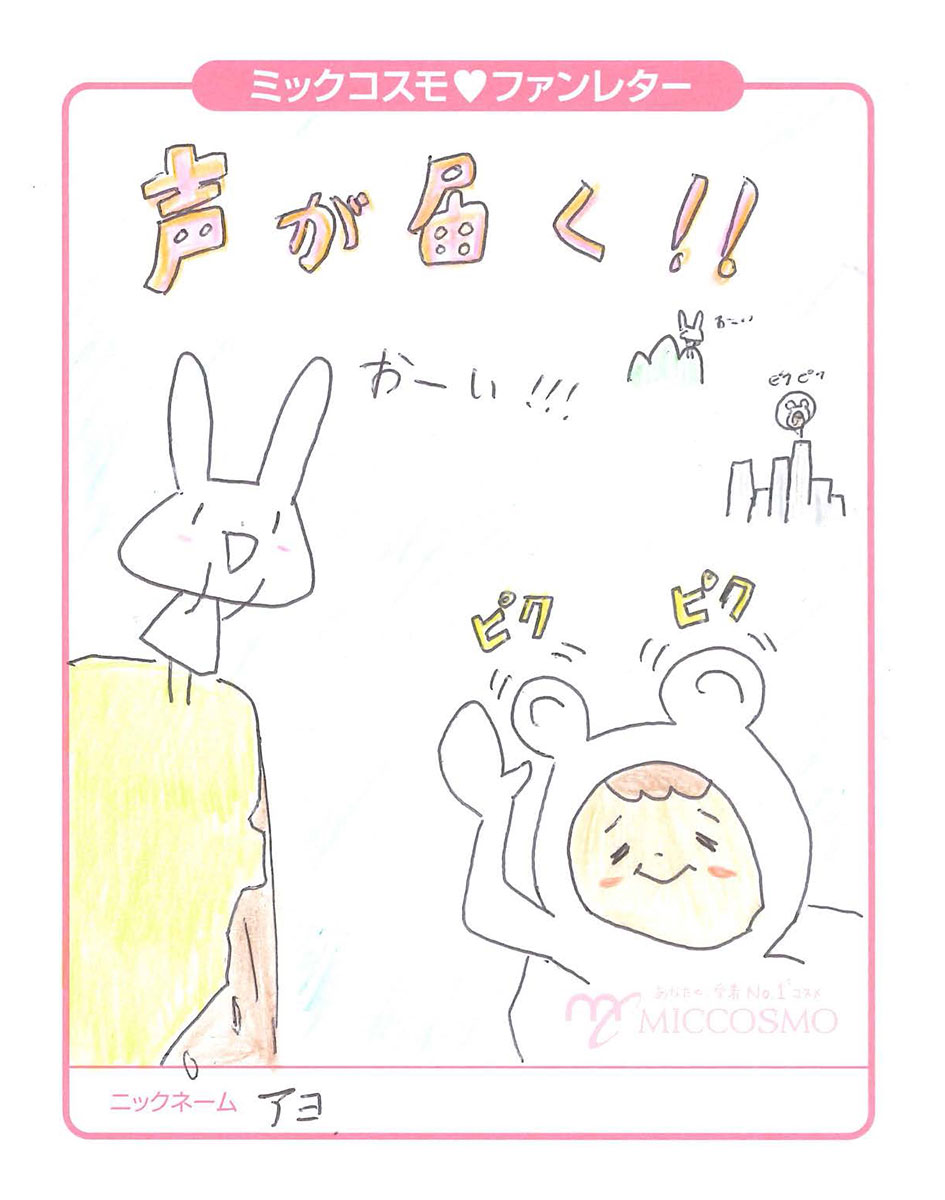 ミックコスモ♥ファンレター
声が届く!!
おーい
おーい!!!
ピクピク
ピク
ピク
あなたと、学者No.1コスメ
MICCOSMO
ニックネーム アヨ